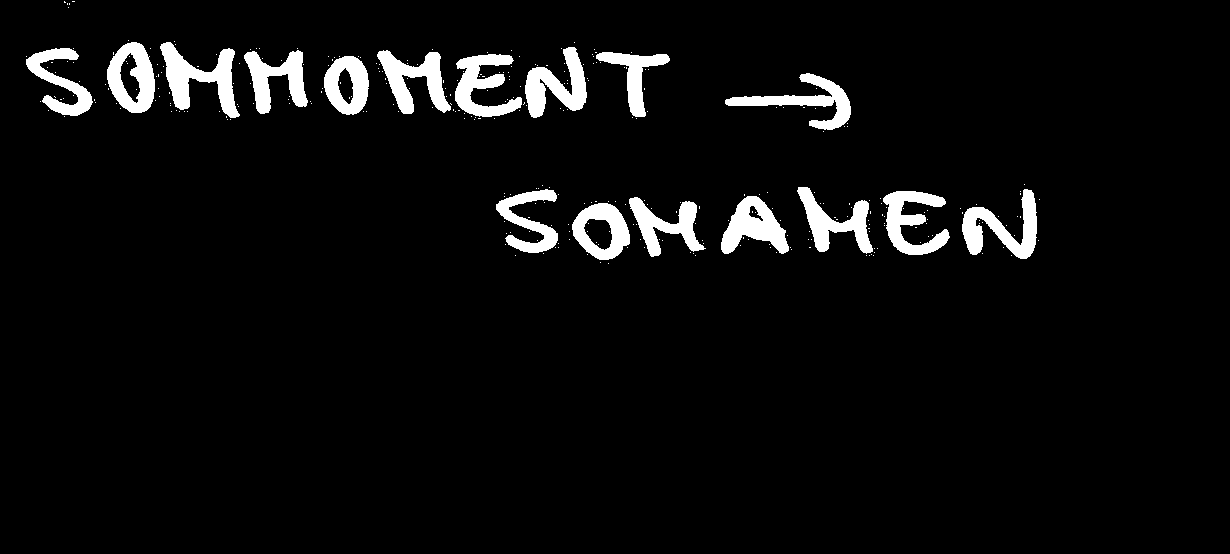 SOMMOMENT →
SOMAMEN